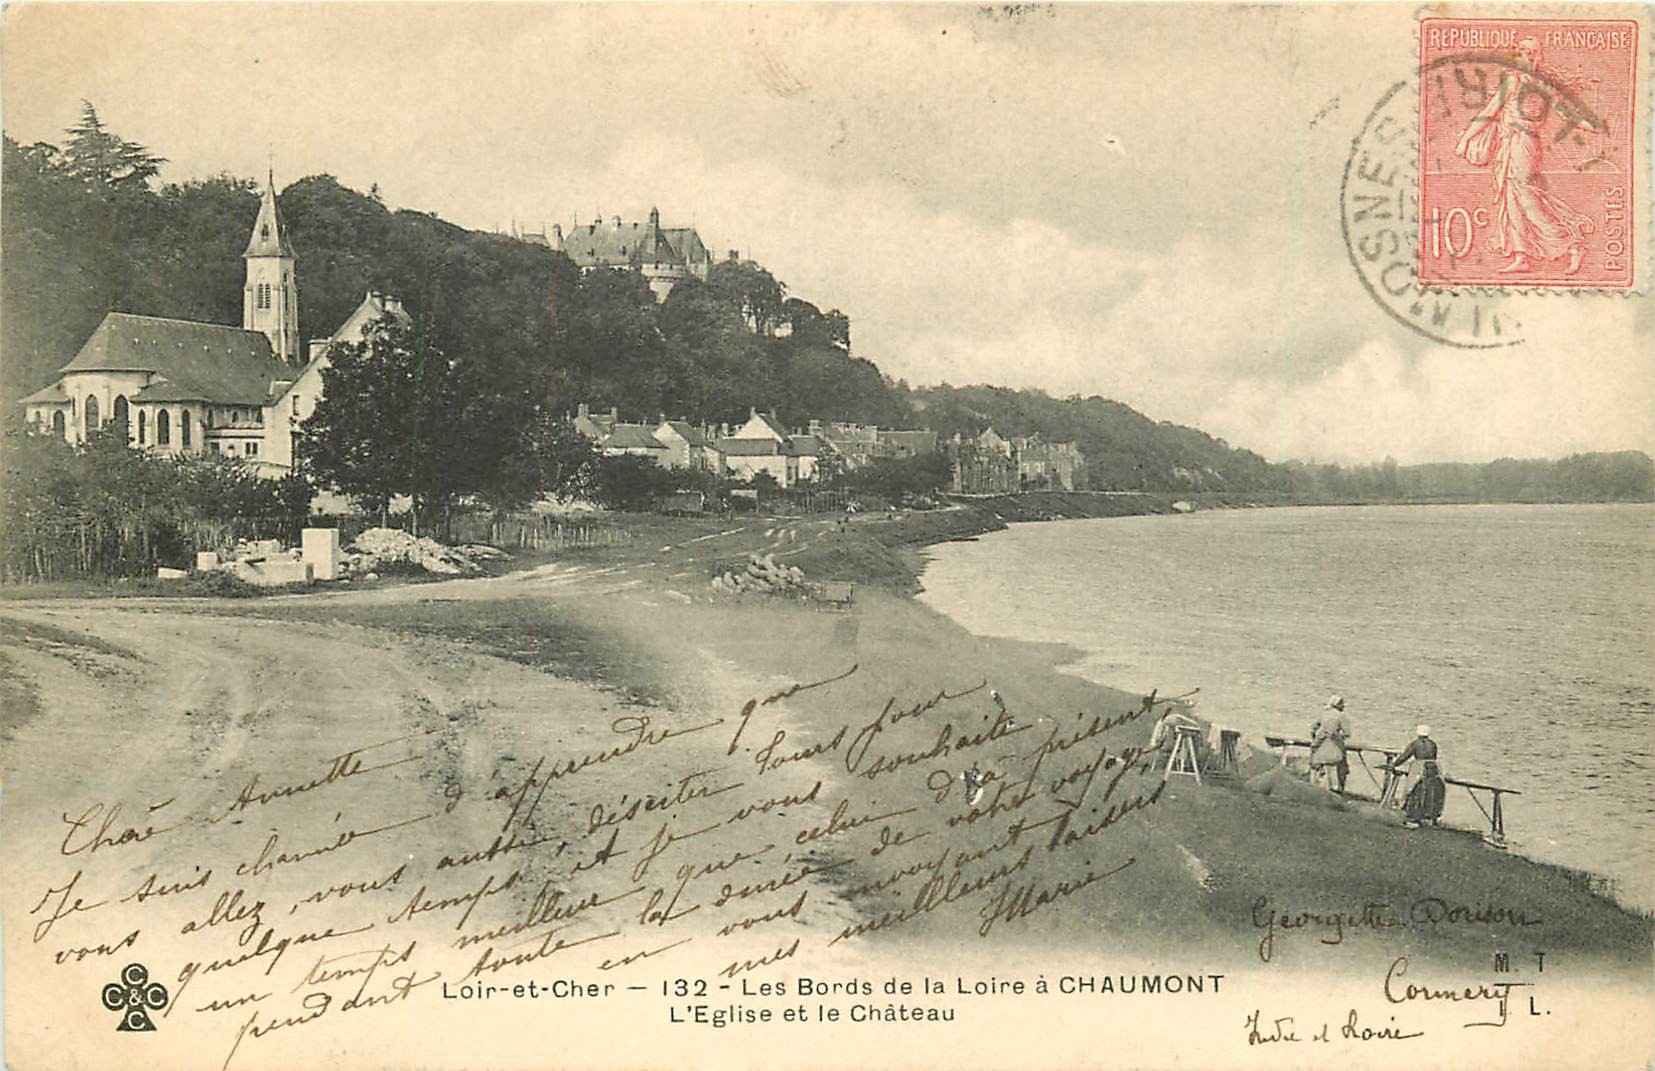 REPUBLIQUE FRANÇAISE
10c
POSTES
Chère Annette
Je suis charmée d'apprendre que
vous allez, vous aussi, déserter Tours pour
quelque temps, et je vous souhaite
un temps meilleur que celui d'à présent,
pendant toute la durée de votre voyage,
en vous envoyant
mes meilleurs baisers
Marie
Georgette Dorison
Cormery
Indre et Loire
C C & C C
Loir-et-Cher — 132 - Les Bords de la Loire à CHAUMONT
L'Eglise et le Château
M. T
I. L.